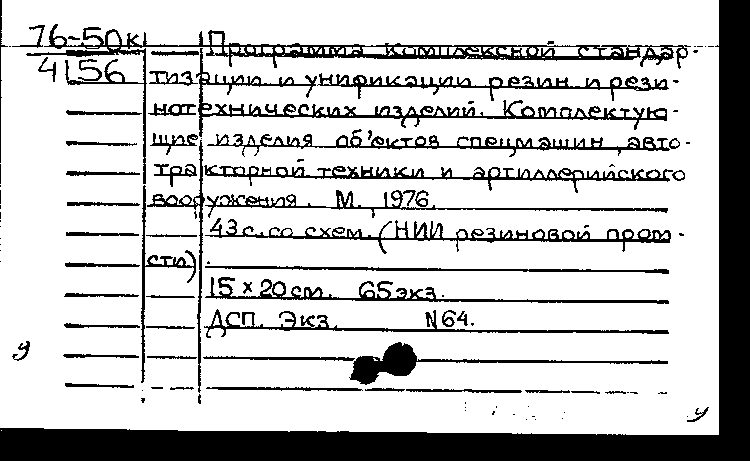 76-50к
4156
Программа комплексной стандар-
тизации и унификации резин и рези-
нотехнических изделий. Комплектую-
щие изделия объектов спецмашин, авто-
тракторной техники и артиллерийского
вооружения. М., 1976.
43 с. со схем. (НИИ резиновой пром-
сти).
15 x 20 см. 65 экз.
ДСП. Экз. N 64.
у
у